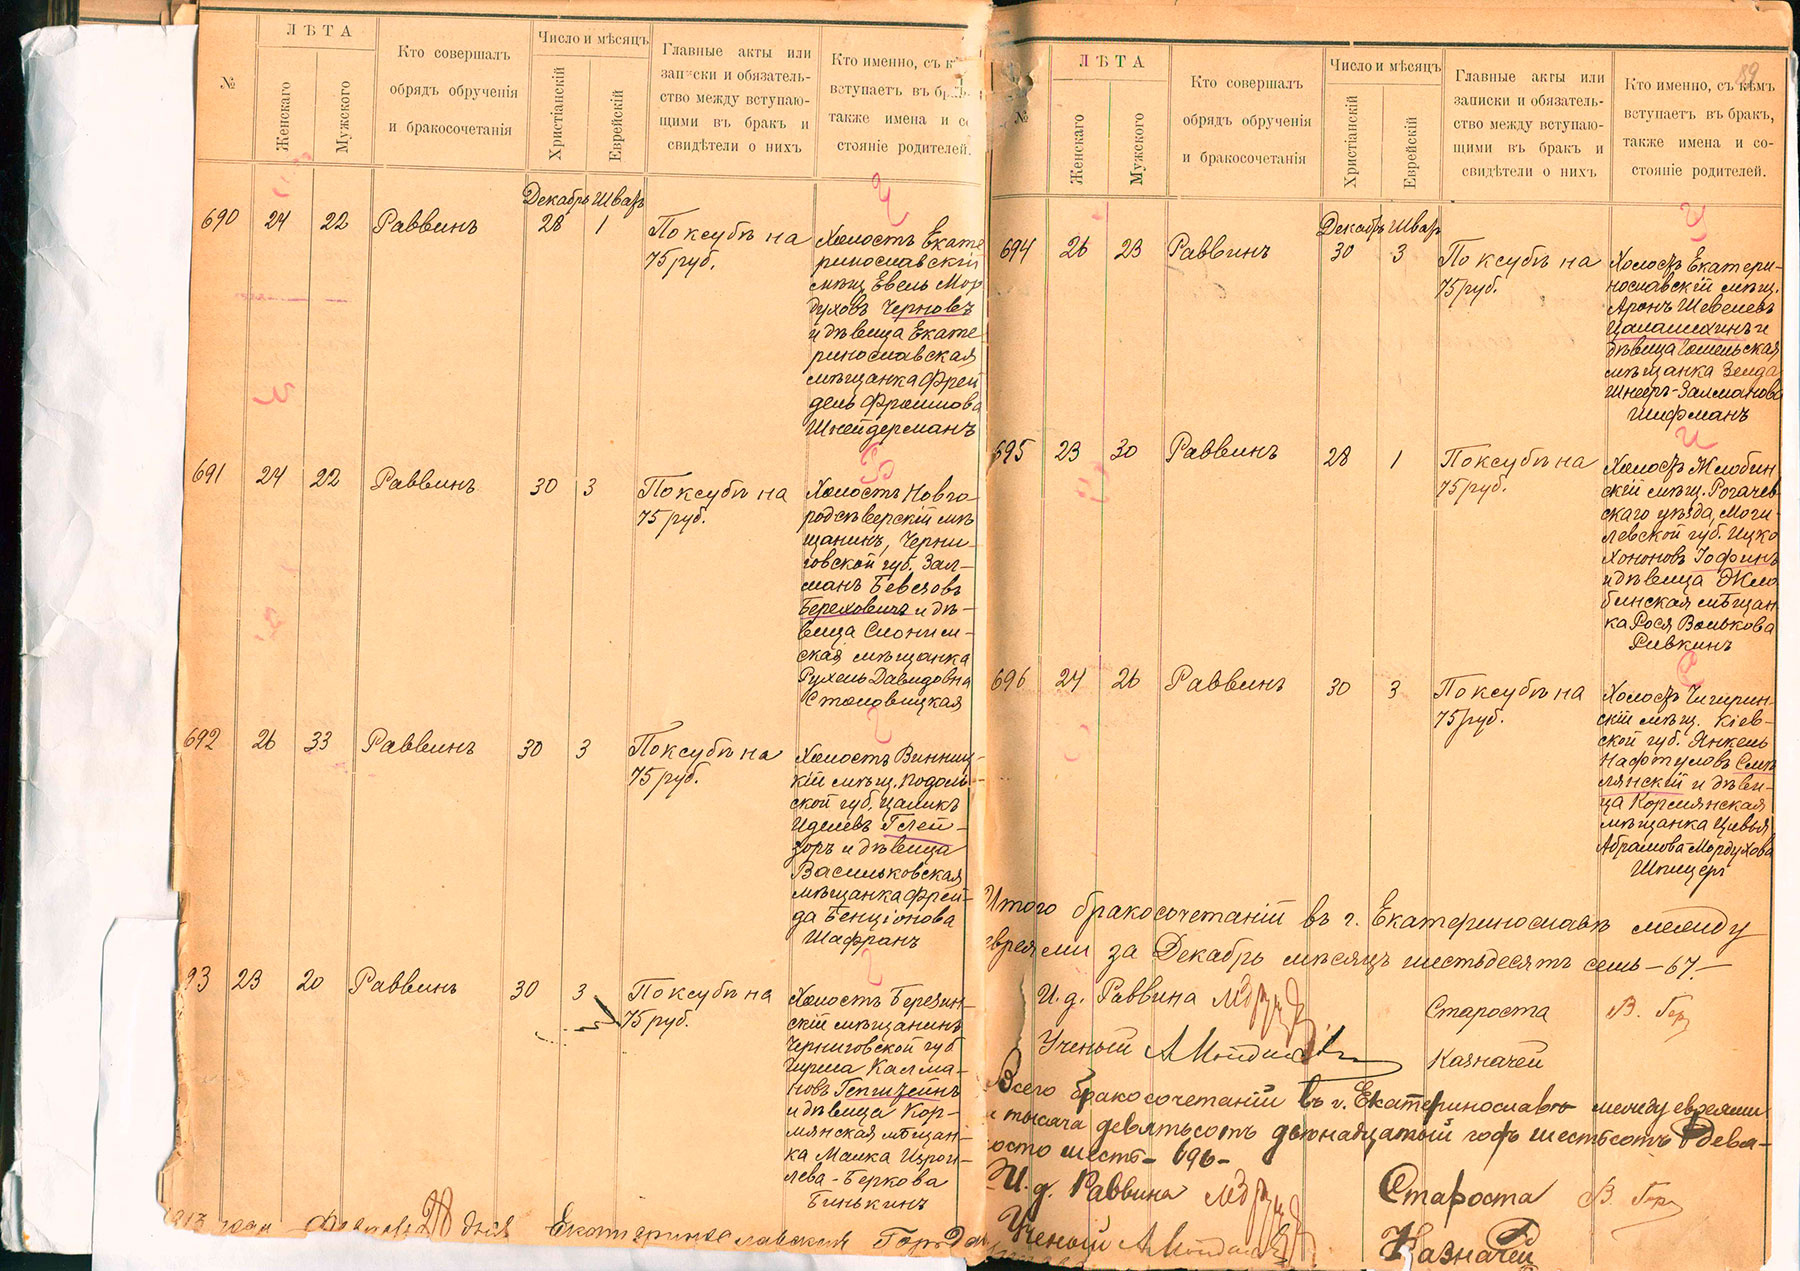 №
ЛѢТА
Женскаго
Мужского
Кто совершалъ
обрядъ обрученія
и бракосочетанія
Число и мѣсяцъ
Христіанскій
Еврейскій
Главные акты или
записки и обязатель-
ство между вступаю-
щими въ бракъ и
свидѣтели о нихъ
Кто именно, съ
вступаетъ въ
также имена и
стояніе родителей.
Декабрь Шватъ
690 24 22 Раввинъ 28 1
По ксубѣ на
75 руб.
Холостъ Екате
ринославскій
мѣщ. Евель Мор
духовъ Черновъ
и дѣвица Екате
ринославская
мѣщанка Фрей
дель Фроимова
Шнейдерманъ
691 24 22 Раввинъ 30 3
По ксубѣ на
75 руб.
Холостъ Новго-
родсѣверскій мѣ
щанинъ, Черни-
говской губ. Зал-
манъ Бевсовъ
Береховичъ и дѣ-
вица Слоним-
ская мѣщанка
Рухель Давидовна
Столовицкая
692 26 33 Раввинъ 30 3
По ксубѣ на
75 руб.
Холостъ Винниц-
кій мѣщ. Подоль-
ской губ. Цаликъ
Иделевъ Глей-
зоръ и дѣвица
Васильковская
мѣщанка Фрей-
да Бенціонова
Шафранъ
93 23 20 Раввинъ 30 3
По ксубѣ на
75 руб.
Холостъ Березин-
скій мѣщанинъ
Черниговской губ
Гирша Калма-
новъ Гепштейнъ
и дѣвица Кор-
мянская мѣщан-
ка Малка Изрои-
лева-Беркова
Бинькинъ
1913 года 28 дня Екатеринославскій
89
№
ЛѢТА
Женскаго
Мужского
Кто совершалъ
обрядъ обрученія
и бракосочетанія
Число и мѣсяцъ
Христіанскій
Еврейскій
Главные акты или
записки и обязатель-
ство между вступаю-
щими въ бракъ и
свидѣтели о нихъ
Кто именно, съ кѣмъ
вступаетъ въ бракъ,
также имена и со-
стояніе родителей.
Декабрь Шватъ
694 26 23 Раввинъ 30 3
По ксубѣ на
75 руб.
Холостъ Екатери-
нославскій мѣщ.
Аронъ Шевелевъ
Цалалихинъ и
дѣвица Гомельская
мѣщанка Зелда
Шнееръ-Залманова
Шифманъ
695 23 30 Раввинъ 28 1
По ксубѣ на
75 руб.
Холостъ Жлобин
скій мѣщ. Рогачев-
скаго уѣзда, Моги-
левской губ. Ицко
Хононовъ Іофинъ
и дѣвица Жло
бинская мѣщан
ка Рося Волькова
Ривкинъ
696 24 26 Раввинъ 30 3
По ксубѣ на
75 руб.
Холостъ Чигирин-
скій мѣщ. Кіев-
ской губ. Янкель
Нафтуловъ Смѣ
лянскій и дѣви-
ца Кормянская
мѣщанка Цивья
Абрамова-Мордухова
Шпицеръ
Итого бракосочетаній въ г. Екатеринославѣ между
евреями за Декабрь мѣсяцъ шестьдесятъ семь -67-
И. д. Раввина Староста В.
Ученый Казначей
Всего бракосочетаній въ г. Екатеринославѣ между евреями
тысяча девятьсотъ двѣнадцатый годъ шестьсотъ девя-
носто шесть - 696-
И. д. Раввина Староста В.
Ученый Казначей